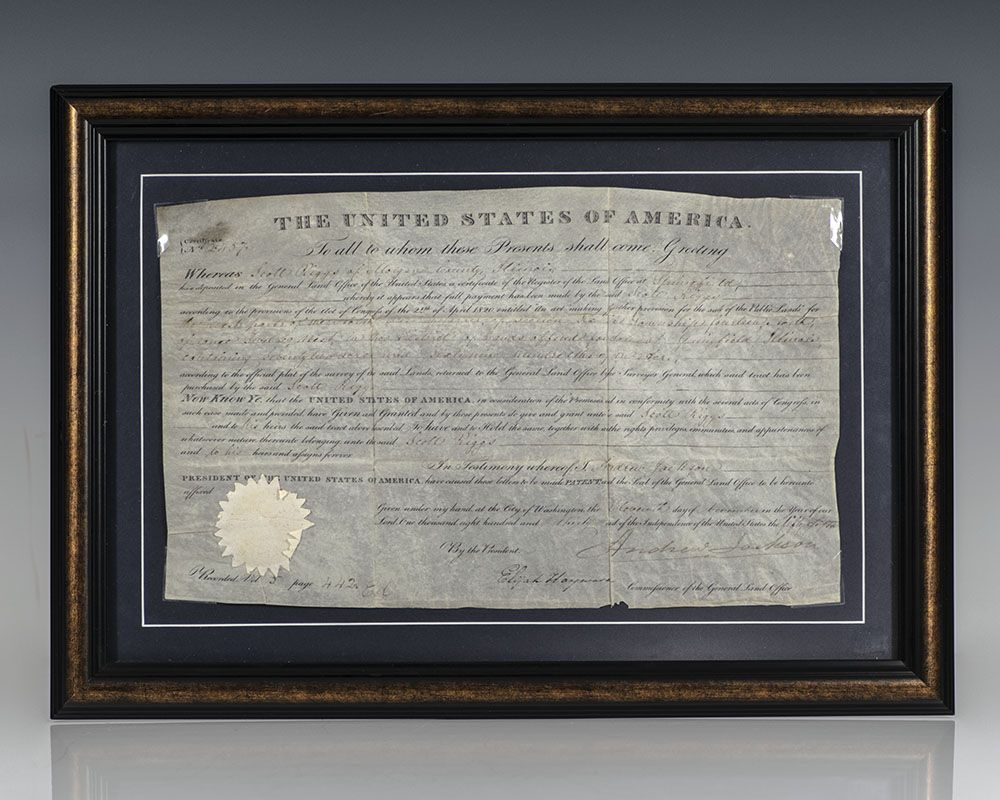 THE UNITED STATES OF AMERICA.
To all to whom these Presents shall come: Greeting
Whereas Scott Riggs of Morgan County, Illinois
has deposited in the General Land Office of the United States, a certificate of the Register of the Land Office at Springfield
whereby it appears that full payment has been made by the said Scott Riggs
according to the provisions of the Act of Congress of the 24th of April 1820 entitled An act making further provision for the sale of the Public Lands for
the of Section in Township fourteen north
of range West in the district of lands offered for Sale at Springfield Illinois
containing and hundredths of an acre,
according to the official plat of the survey of the said Lands, returned to the General Land Office by the Surveyor General, which said tract has been
purchased by the said Scott Riggs
Now Know Ye, that the UNITED STATES OF AMERICA, in consideration of the Premises and in conformity with the several acts of Congress, in
such case made and provided, have Given and Granted and by these presents do give and grant unto the said Scott Riggs
and to his heirs the said tract above described: To have and to Hold the same, together with all the rights, privileges, immunities, and appurtenances of
whatsoever nature, thereunto belonging, unto the said Scott Riggs
and to his heirs and assigns forever
In Testimony whereof I, Andrew Jackson
PRESIDENT OF THE UNITED STATES OF AMERICA, have caused these letters to be made PATENT and the Seal of the General Land Office to be hereunto
affixed
Given under my hand, at the City of Washington, the day of in the Year of our
Lord One thousand eight hundred and thirty and of the Independence of the United States the fifty
Andrew Jackson
By the President.
Elijah Hayward Commissioner of the General Land Office
Recorded, Vol 3 page 442